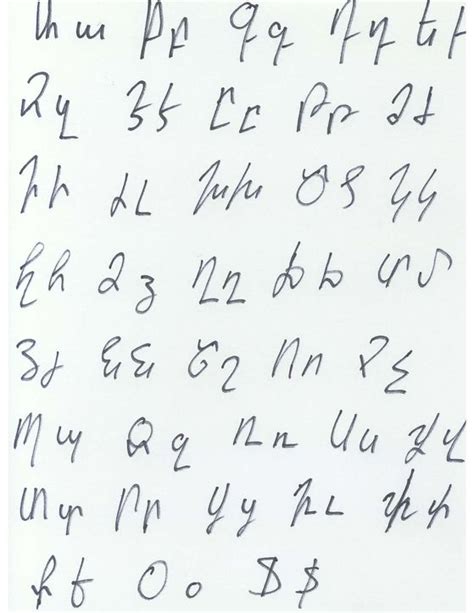 Ա ա Բ բ Գ գ Դ դ Ե ե
Զ զ Է է Ը ը Թ թ Ժ ժ
Ի ի Լ լ Խ խ Ծ ծ Կ կ
Հ հ Ձ ձ Ղ ղ Ճ ճ Մ մ
Յ յ Ն ն Շ շ Ո ո Չ չ
Պ պ Ջ ջ Ռ ռ Ս ս Վ վ
Տ տ Ր ր Ց ց Ւ ւ Փ փ
Ք ք Օ օ Ֆ ֆ